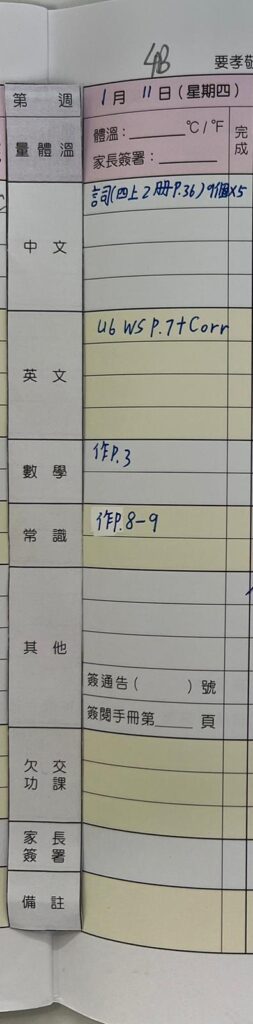 4B
要孝敬
第 週
1月 11日(星期四)
量體溫
體溫:______°C/°F
家長簽署:______
完成
中文
詞(四上2冊P.36)9個x5
英文
U6 WS P.7+Corr
數學
作P.3
常識
作P.8-9
其他
簽通告( )號
簽閱手冊第____頁
欠交
功課
家長
簽署
備註